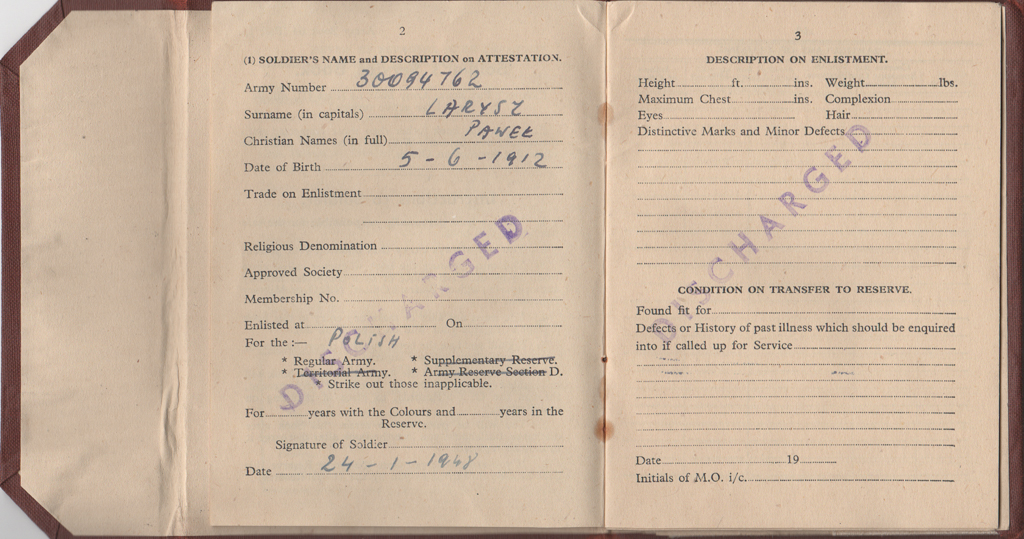 2
(1) SOLDIER'S NAME and DESCRIPTION on ATTESTATION.
Army Number 30094762
Surname (in capitals) LARYSZ
Christian Names (in full) PAWEŁ
Date of Birth 5-6-1912
Trade on Enlistment
Religious Denomination
Approved Society
Membership No.
Enlisted at On
For the :— POLISH
* Regular Army. * Supplementary Reserve.
* Territorial Army. * Army Reserve Section D.
Strike out those inapplicable.
For years with the Colours and years in the
Reserve.
Signature of Soldier
Date 24-1-1948
DISCHARGED
3
DESCRIPTION ON ENLISTMENT.
Height ft. ins. Weight lbs.
Maximum Chest ins. Complexion
Eyes Hair
Distinctive Marks and Minor Defects
CONDITION ON TRANSFER TO RESERVE.
Found fit for
Defects or History of past illness which should be enquired
into if called up for Service
Date 19
Initials of M.O. i/c.
DISCHARGED